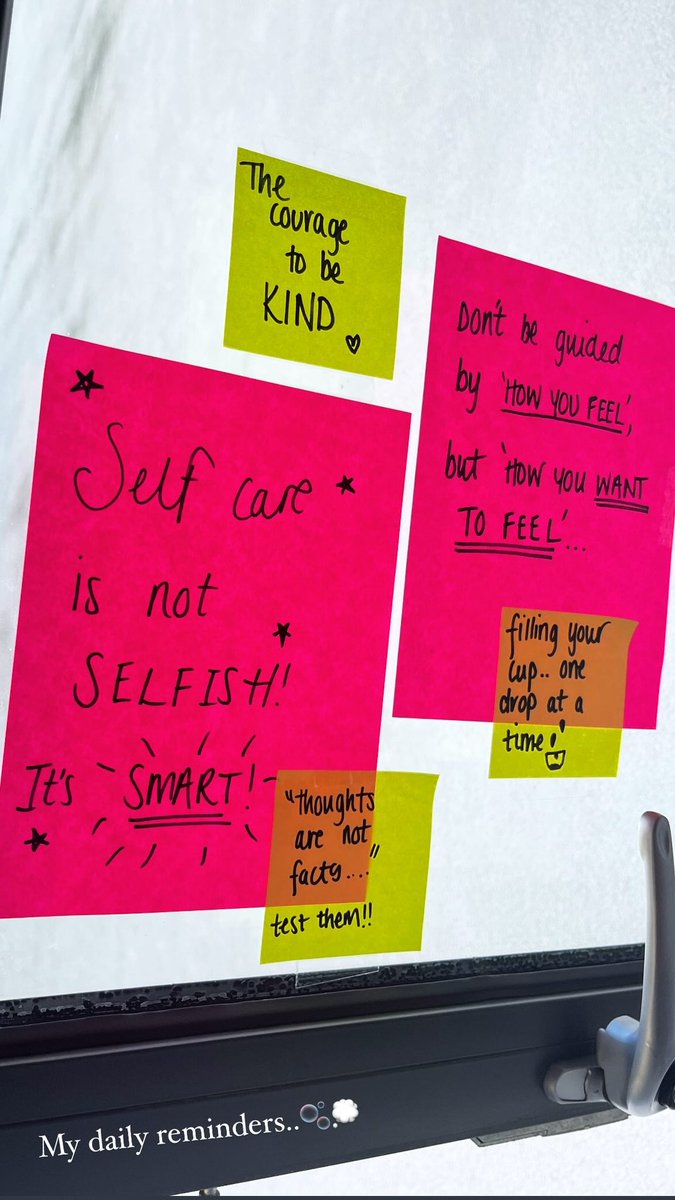 The
courage
to be
KIND
Don't be guided
by 'HOW YOU FEEL',
but 'HOW YOU WANT
TO FEEL'...
Self care
is not
SELFISH!
It's SMART!
filling your
cup.. one
drop at a
time
"thoughts
are not
facts...."
test them!!
My daily reminders..